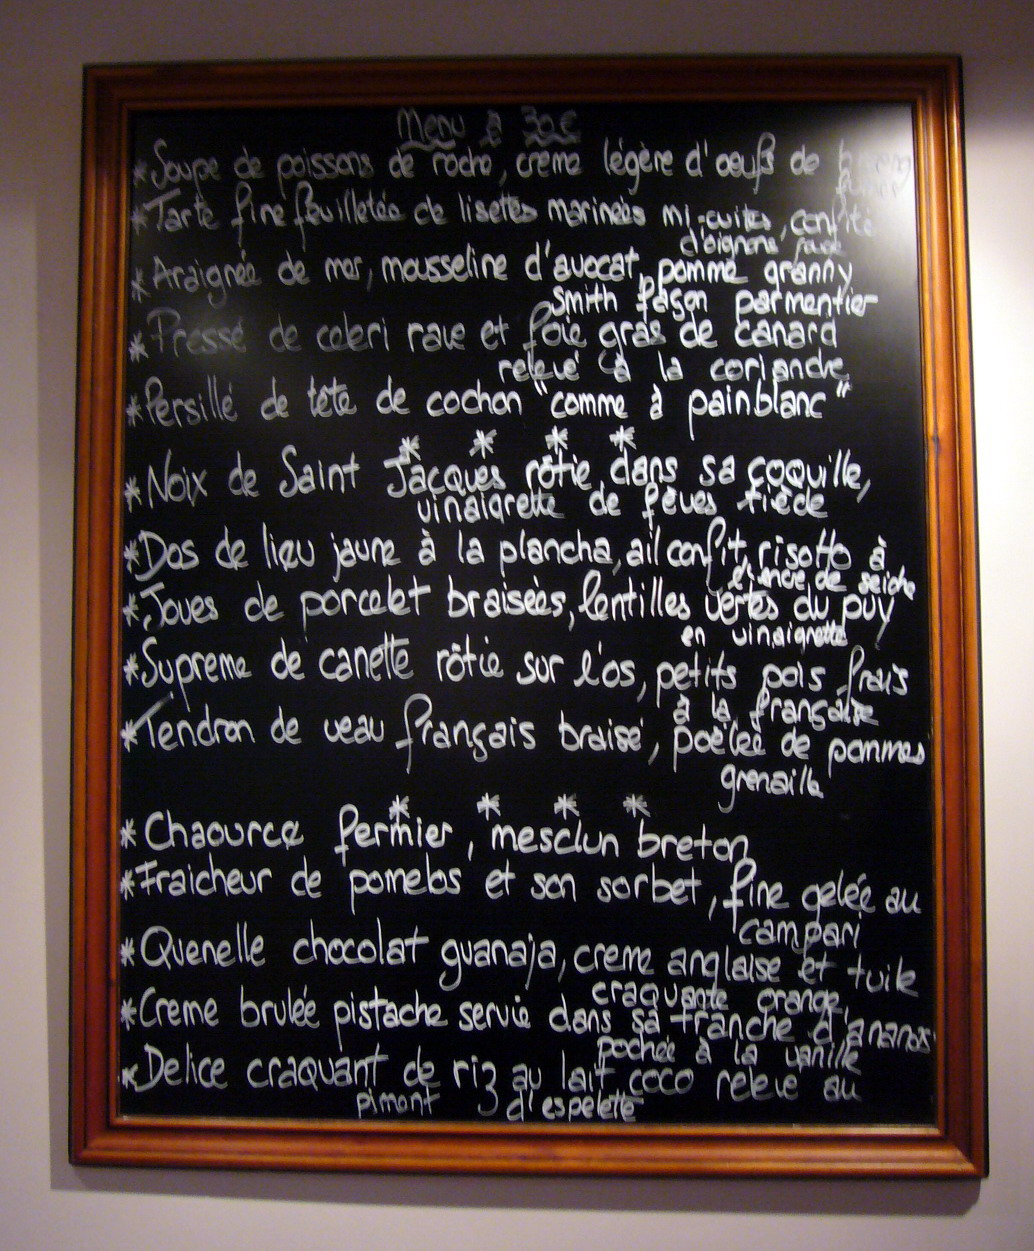 Menu à 30€
*Soupe de poissons de roche, crème légère d'oeufs de hareng
fumés
*Tarte fine feuilletée de lisettes marinées mi-cuites, confite
d'oignons
*Araignée de mer, mousseline d'avocat, pomme granny
Smith façon parmentier
*Pressé de celeri rave et foie gras de canard
relevé à la coriandre
*Persillé de tête de cochon "comme à painblanc"
* * * *
*Noix de Saint Jacques rôtie dans sa coquille,
vinaigrette de fèves tiède
*Dos de lieu jaune à la plancha, ail confit, risotto à
l'encre de seiche
*Joues de porcelet braisées, lentilles vertes du puy
en vinaigrette
*Supreme de canette rôtie sur l'os, petits pois frais
à la française
*Tendron de veau français braisé, poëlée de pommes
grenaille
* * * *
*Chaource fermier, mesclun breton
*Fraicheur de pomelos et son sorbet, fine gelée au
campari
*Quenelle chocolat guanaja, creme anglaise et tuile
craquante orange,
*Creme brulée pistache servie dans sa tranche d'ananas
pochée à la vanille
*Delice craquant de riz au lait coco releve au
piment d'espelette